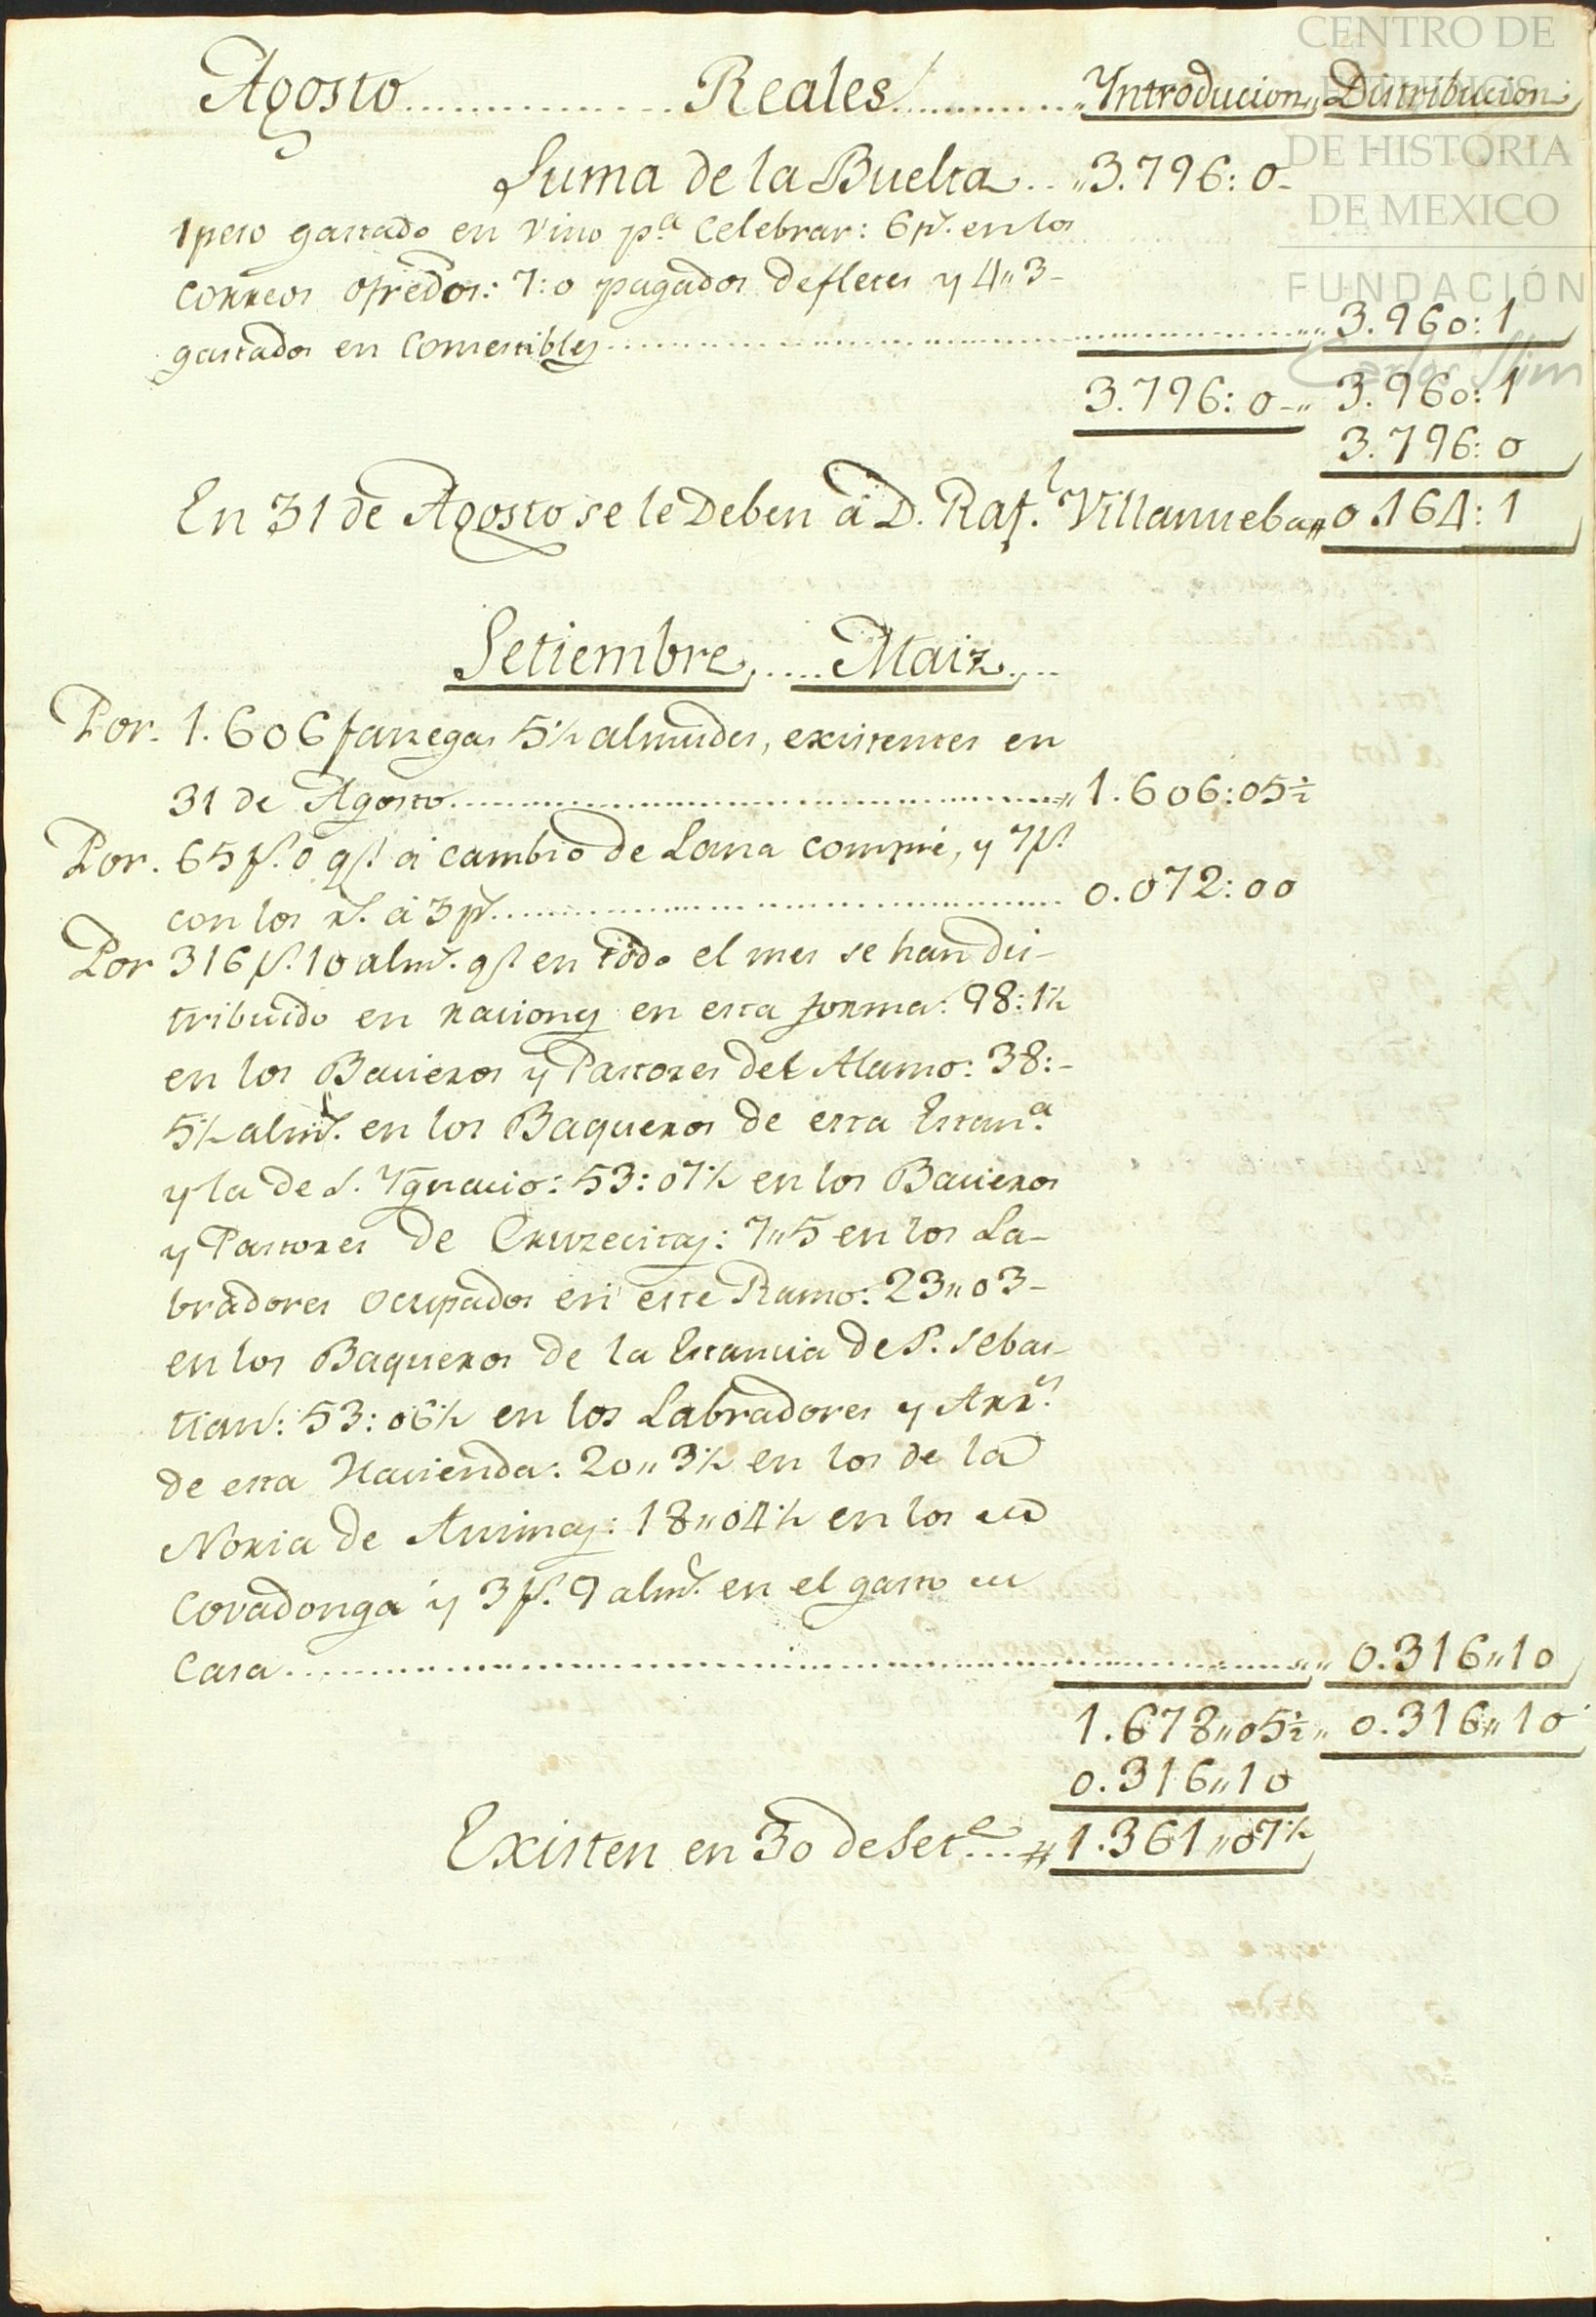 CENTRO DE
ESTUDIOS
DE HISTORIA
DE MEXICO
FUNDACIÓN
Carlos Slim
Agosto............Reales............Introducion,, Distribucion
Suma de la Buelta..,,3.796:0-
1 peso gastado en vino p.ª Celebrar: 6 p.s en los
correos ofredos: 7:0 pagados defletes y 4,,3-
gastados en Comestibles............,,3.960:1
3.796:0-,, 3.960:1
3.796:0
En 31 de Agosto se le Deben á D. Raf.l Villanueba,,0.164:1
Setiembre,....Maiz,...
Por. 1.606 fanegas 5½ almudes, existentes en
31 de Agosto............,,1.606:05½
Por. 65 f.s o q.e á cambio de Lana compré, y 7 f.s
con los r.s á 3 p.s............0.072:00
Por 316 f.s 10 alm.s q.e en todo el mes se han dis-
tribuido en raciones en esta forma: 98:1½
en los Bacieros y Pastores del Alamo: 38:-
5½ alm.s en los Baqueros de esta Estan.ª
y la de S. Ygnacio: 53:07½ en los Bacieros
y Pastores de Cruzecitas: 7,,5 en los La-
bradores ocupados en este Ramo: 23,,03-
en los Baqueros de la Estancia de S. Sebas-
tian: 53:06½ en los Labradores y Arr.s
de esta Hacienda: 20,,3½ en los de la
Noria de Animas: 18,,04½ en los de
Covadonga y 3 f.s 9 alm.s en el gasto de
Casa............,,0.316,,10
1.678,,05½,, 0.316,,10
0.316,,10
Existen en 30 de Set.e...#1.361,,07½